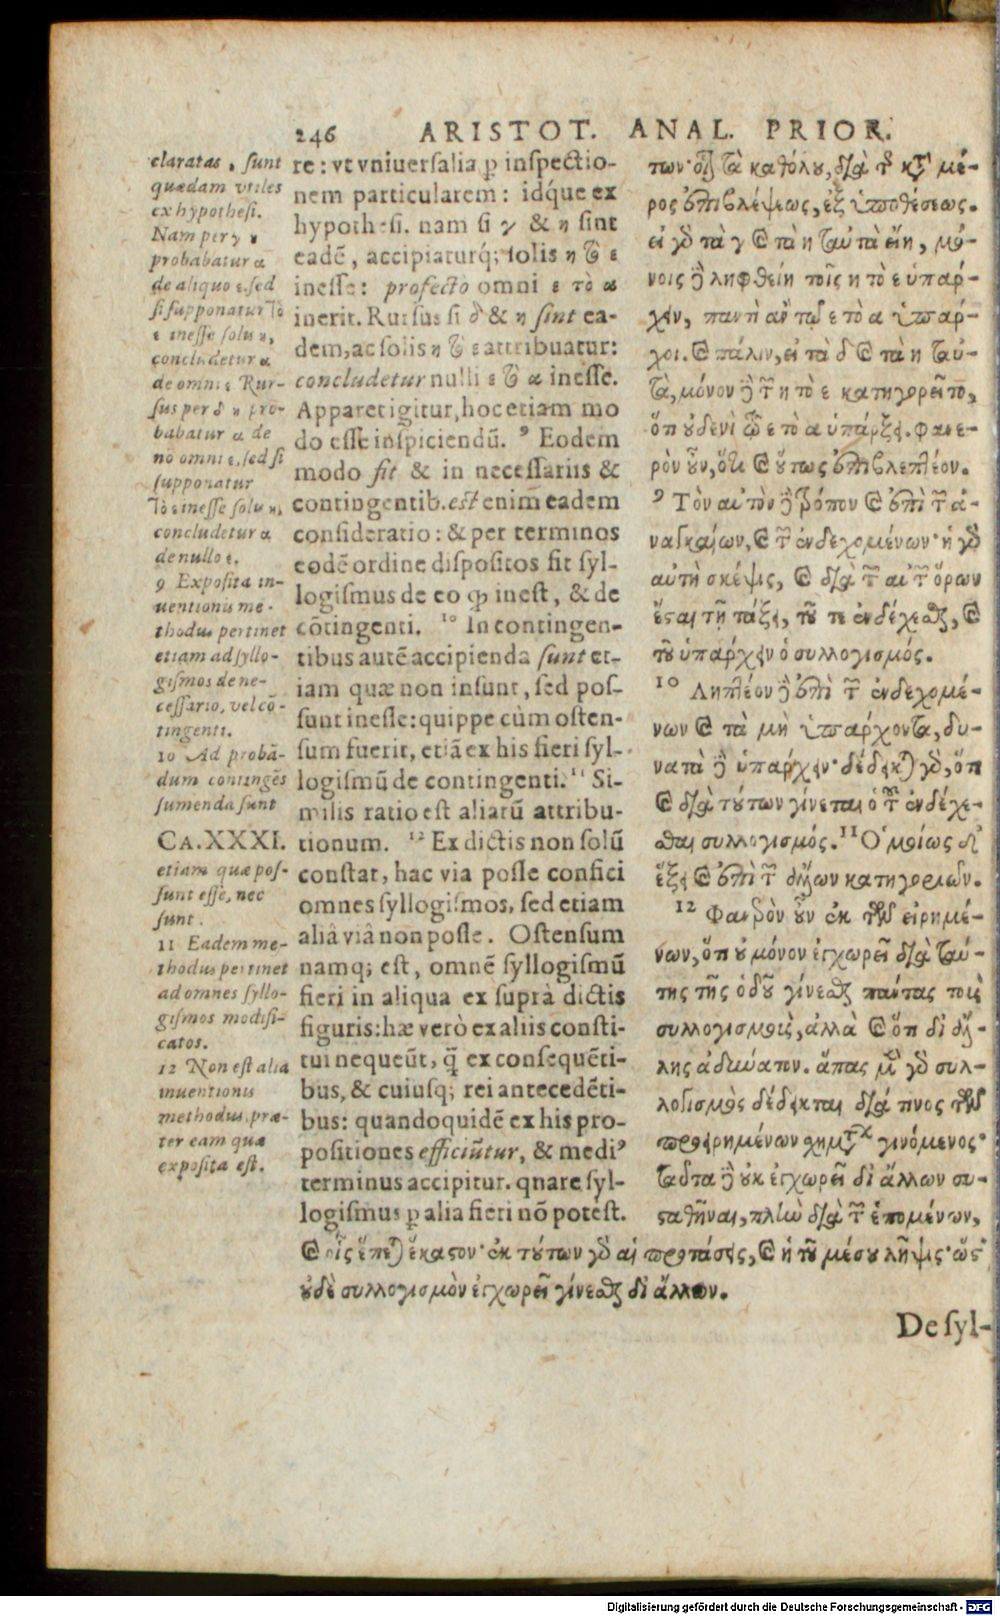 246 ARISTOT. ANAL. PRIOR.
claratas, sunt
quædam vtiles
ex hypothesi.
Nam per γ η
probabatur α
de aliquo ε. sed
si supponatur τὸ
ε inesse solu η,
concludetur α
de omni ε. Rur-
sus per δ η pro-
babatur α de
nō omni ε, sed si
supponatur
τὸ ε inesse solu η,
concludetur α
de nullo ε.
9 Exposita in-
uentionu me-
thodus pertinet
etiam ad syllo-
gismos de ne-
cessario, vel cō-
tingenti.
10 Ad probā-
dum contingēs
sumenda sunt
CA. XXXI.
etiam quæ pos-
sunt esse, nec
sunt.
11 Eadem me-
thodus pertinet
ad omnes syllo-
gismos modifi-
catos.
12 Non est alia
inuentionis
methodus, præ-
ter eam quæ
exposita est.
re: vt vniuersalia ꝑ inspectio-
nem particularem: idq́ue ex
hypothesi. nam si γ & η sint
eadē, accipiaturq́; solis η τὸ ε
inesse: profectò omni ε τὸ α
inerit. Rursus si δ & η sint ea-
dem, ac solis η τὸ ε attribuatur:
concludetur nulli ε τὸ α inesse.
Apparet igitur, hoc etiam mo
do esse inspiciendū. 9 Eodem
modo fit & in necessariis &
contingentib. est enim eadem
consideratio: & per terminos
eodē ordine dispositos fit syl-
logismus de eo ꝙ inest, & de
cōtingenti. 10 In contingen-
tibus autē accipienda sunt et-
iam quæ non insunt, sed pos-
sunt inesse: quippe cùm osten-
sum fuerit, etiā ex his fieri syl-
logismū de contingenti. 11 Si-
milis ratio est aliarū attribu-
tionum. 12 Ex dictis non solū
constat, hac via posse confici
omnes syllogismos, sed etiam
aliâ viâ non posse. Ostensum
namq; est, omnē syllogismū
fieri in aliqua ex suprà dictis
figuris: hæ verò ex aliis consti-
tui nequeūt, q̃ ex consequēti-
bus, & cuiusq; rei antecedēti-
bus: quandoquidē ex his pro-
positiones efficiūtur, & mediꝰ
terminus accipitur. qnare syl-
logismus ꝑ alia fieri nō potest.
των· οἷον τὰ καθόλου, διὰ τῆς κατὰ μέ-
ρος ἐπιβλέψεως, ἐξ ὑποθέσεως.
εἰ γὰρ τὰ γ καὶ τὰ η ταὐτὰ εἴη, μό-
νοις δὲ ληφθείη τοῖς η τὸ ε ὑπάρ-
χειν, παντὶ ἂν τῷ ε τὸ α ὑπάρ-
χοι. καὶ πάλιν, εἰ τὰ δ καὶ τὰ η ταὐ-
τὰ, μόνον δὲ τῶν η τὸ ε κατηγορεῖτο,
ὅτι οὐδενὶ τῷ ε τὸ α ὑπάρξει. φανε-
ρὸν οὖν, ὅτι καὶ οὕτως ἐπιβλεπτέον.
9 Τὸν αὐτὸν δὲ τρόπον καὶ ἐπὶ τῶν ἀ-
ναγκαίων, καὶ τῶν ἐνδεχομένων· ἡ γὰρ
αὐτὴ σκέψις, καὶ διὰ τῶν αὐτῶν ὅρων
ἔσται τῇ τάξει, τοῦ τε ἐνδέχεσθαι, καὶ
τοῦ ὑπάρχειν ὁ συλλογισμός.
10 Ληπτέον δὲ ἐπὶ τῶν ἐνδεχομέ-
νων καὶ τὰ μὴ ὑπάρχοντα, δυ-
νατὰ δὲ ὑπάρχειν· δέδεικται γὰρ, ὅτι
καὶ διὰ τούτων γίνεται ὁ τοῦ ἐνδέχε-
σθαι συλλογισμός. 11 Ὁμοίως δὲ
ἕξει καὶ ἐπὶ τῶν ἄλλων κατηγοριῶν.
12 Φανερὸν οὖν ἐκ τῶν εἰρημέ-
νων, ὅτι οὐ μόνον ἐγχωρεῖ διὰ ταύ-
της τῆς ὁδοῦ γίνεσθαι πάντας τοὺς
συλλογισμοὺς, ἀλλὰ καὶ ὅτι δι' ἄλ-
λης ἀδύνατον. ἅπας μὲν γὰρ συλ-
λογισμὸς δέδεικται διά τινος τῶν
προειρημένων σχημάτων γινόμενος·
ταῦτα δὲ οὐκ ἐγχωρεῖ δι' ἄλλων συ-
σταθῆναι, πλὴν διὰ τῶν ἑπομένων,
καὶ οἷς ἕπεται ἕκαστον· ἐκ τούτων γὰρ αἱ προτάσεις, καὶ ἡ τοῦ μέσου λῆψις· ὥς
οὐδὲ συλλογισμὸν ἐγχωρεῖ γίνεσθαι δι' ἄλλων.
De syl-
Digitalisierung gefördert durch die Deutsche Forschungsgemeinschaft - DFG